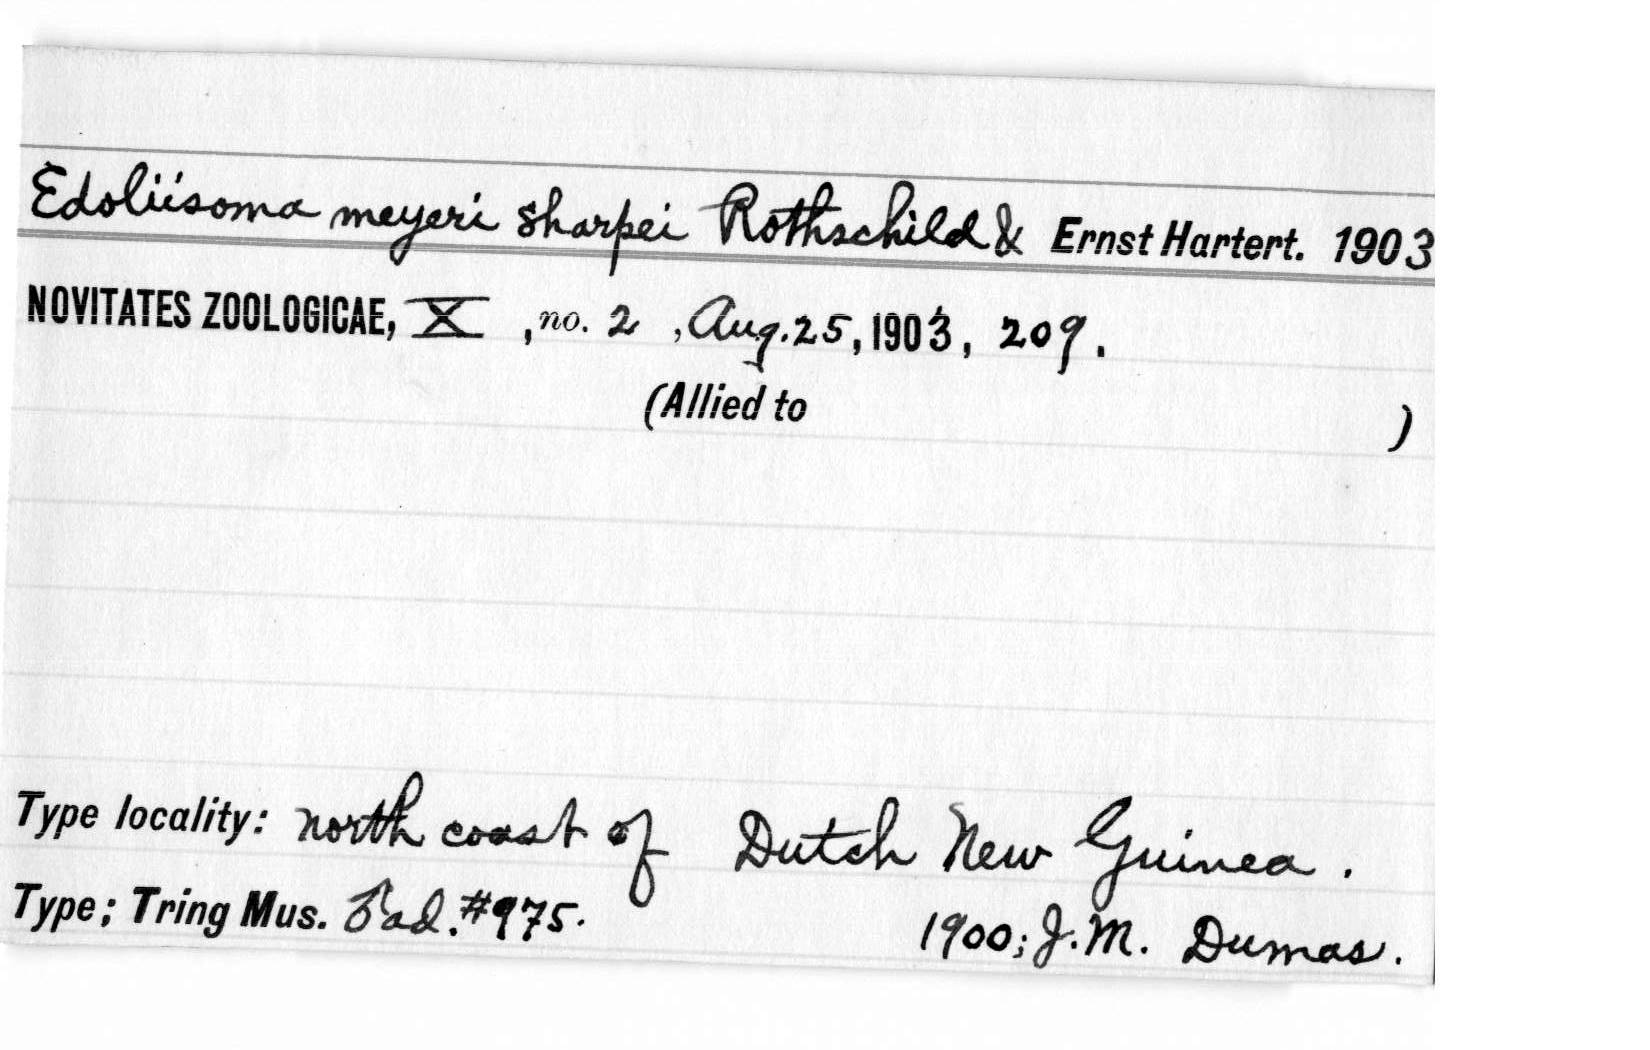 Edoliisoma meyeri sharpei Rothschild & Ernst Hartert. 1903
NOVITATES ZOOLOGICAE, X , no. 2 , Aug. 25, 1903, 209.
(Allied to )
Type locality: north coast of Dutch New Guinea.
Type; Tring Mus. ♂ ad. #975. 1900; J. M. Dumas.